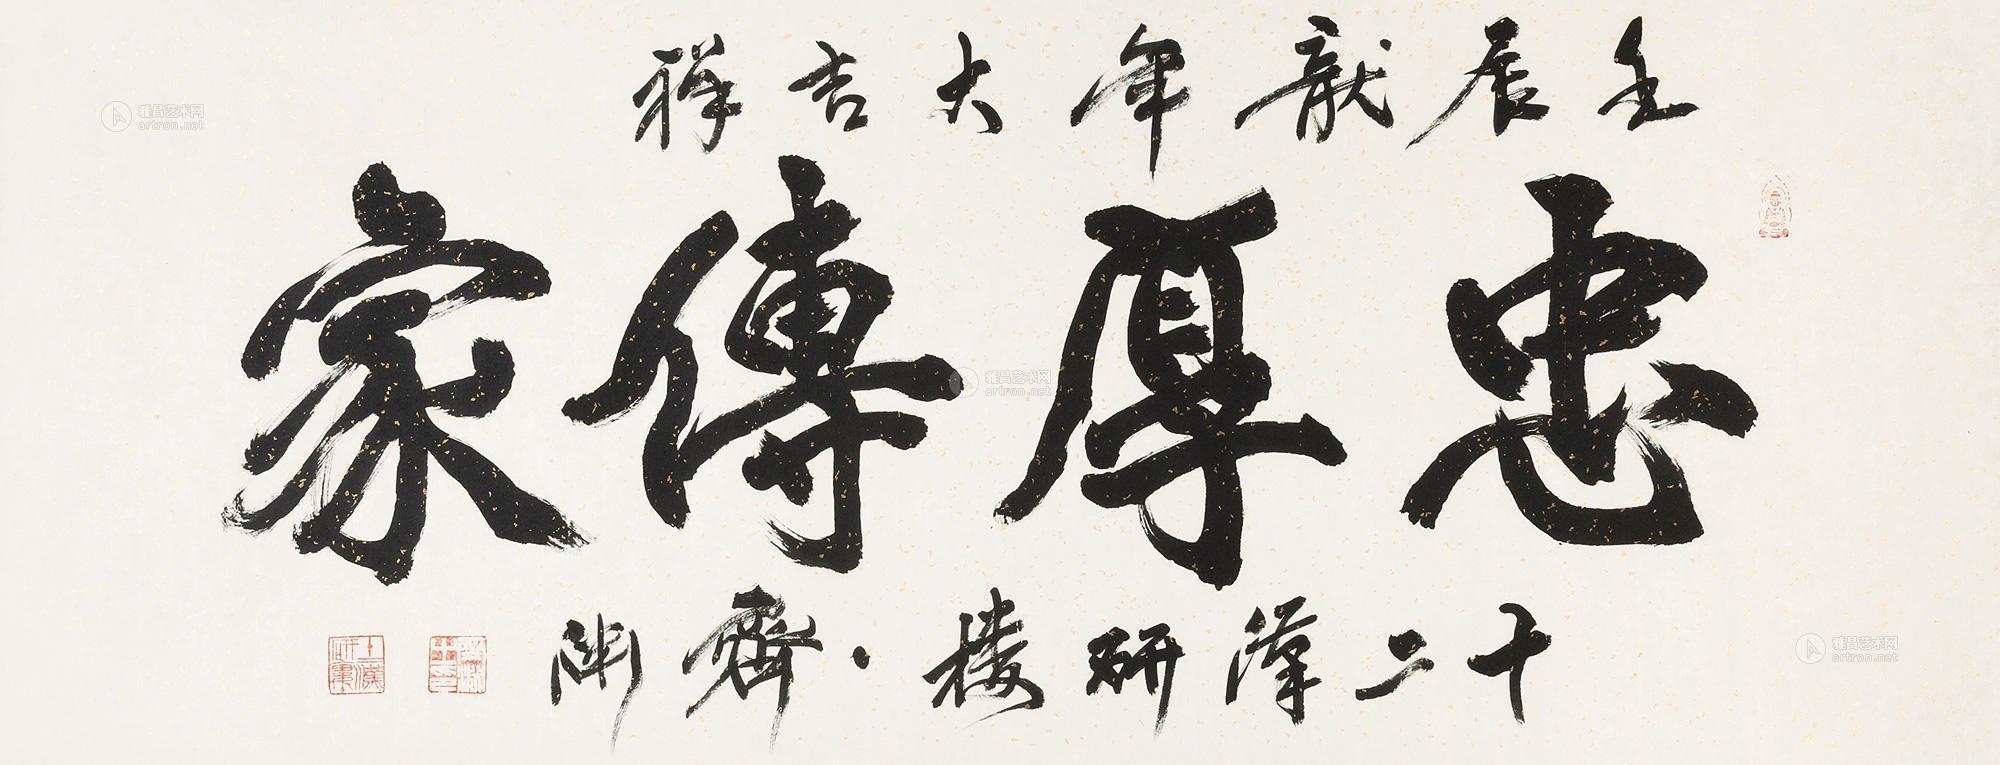 壬辰龍年大吉祥
忠厚傳家
十二漢研樓·齊淵
雅昌艺术网
artron.net
雅昌艺术网
artron.net
雅昌艺术网
artron.net